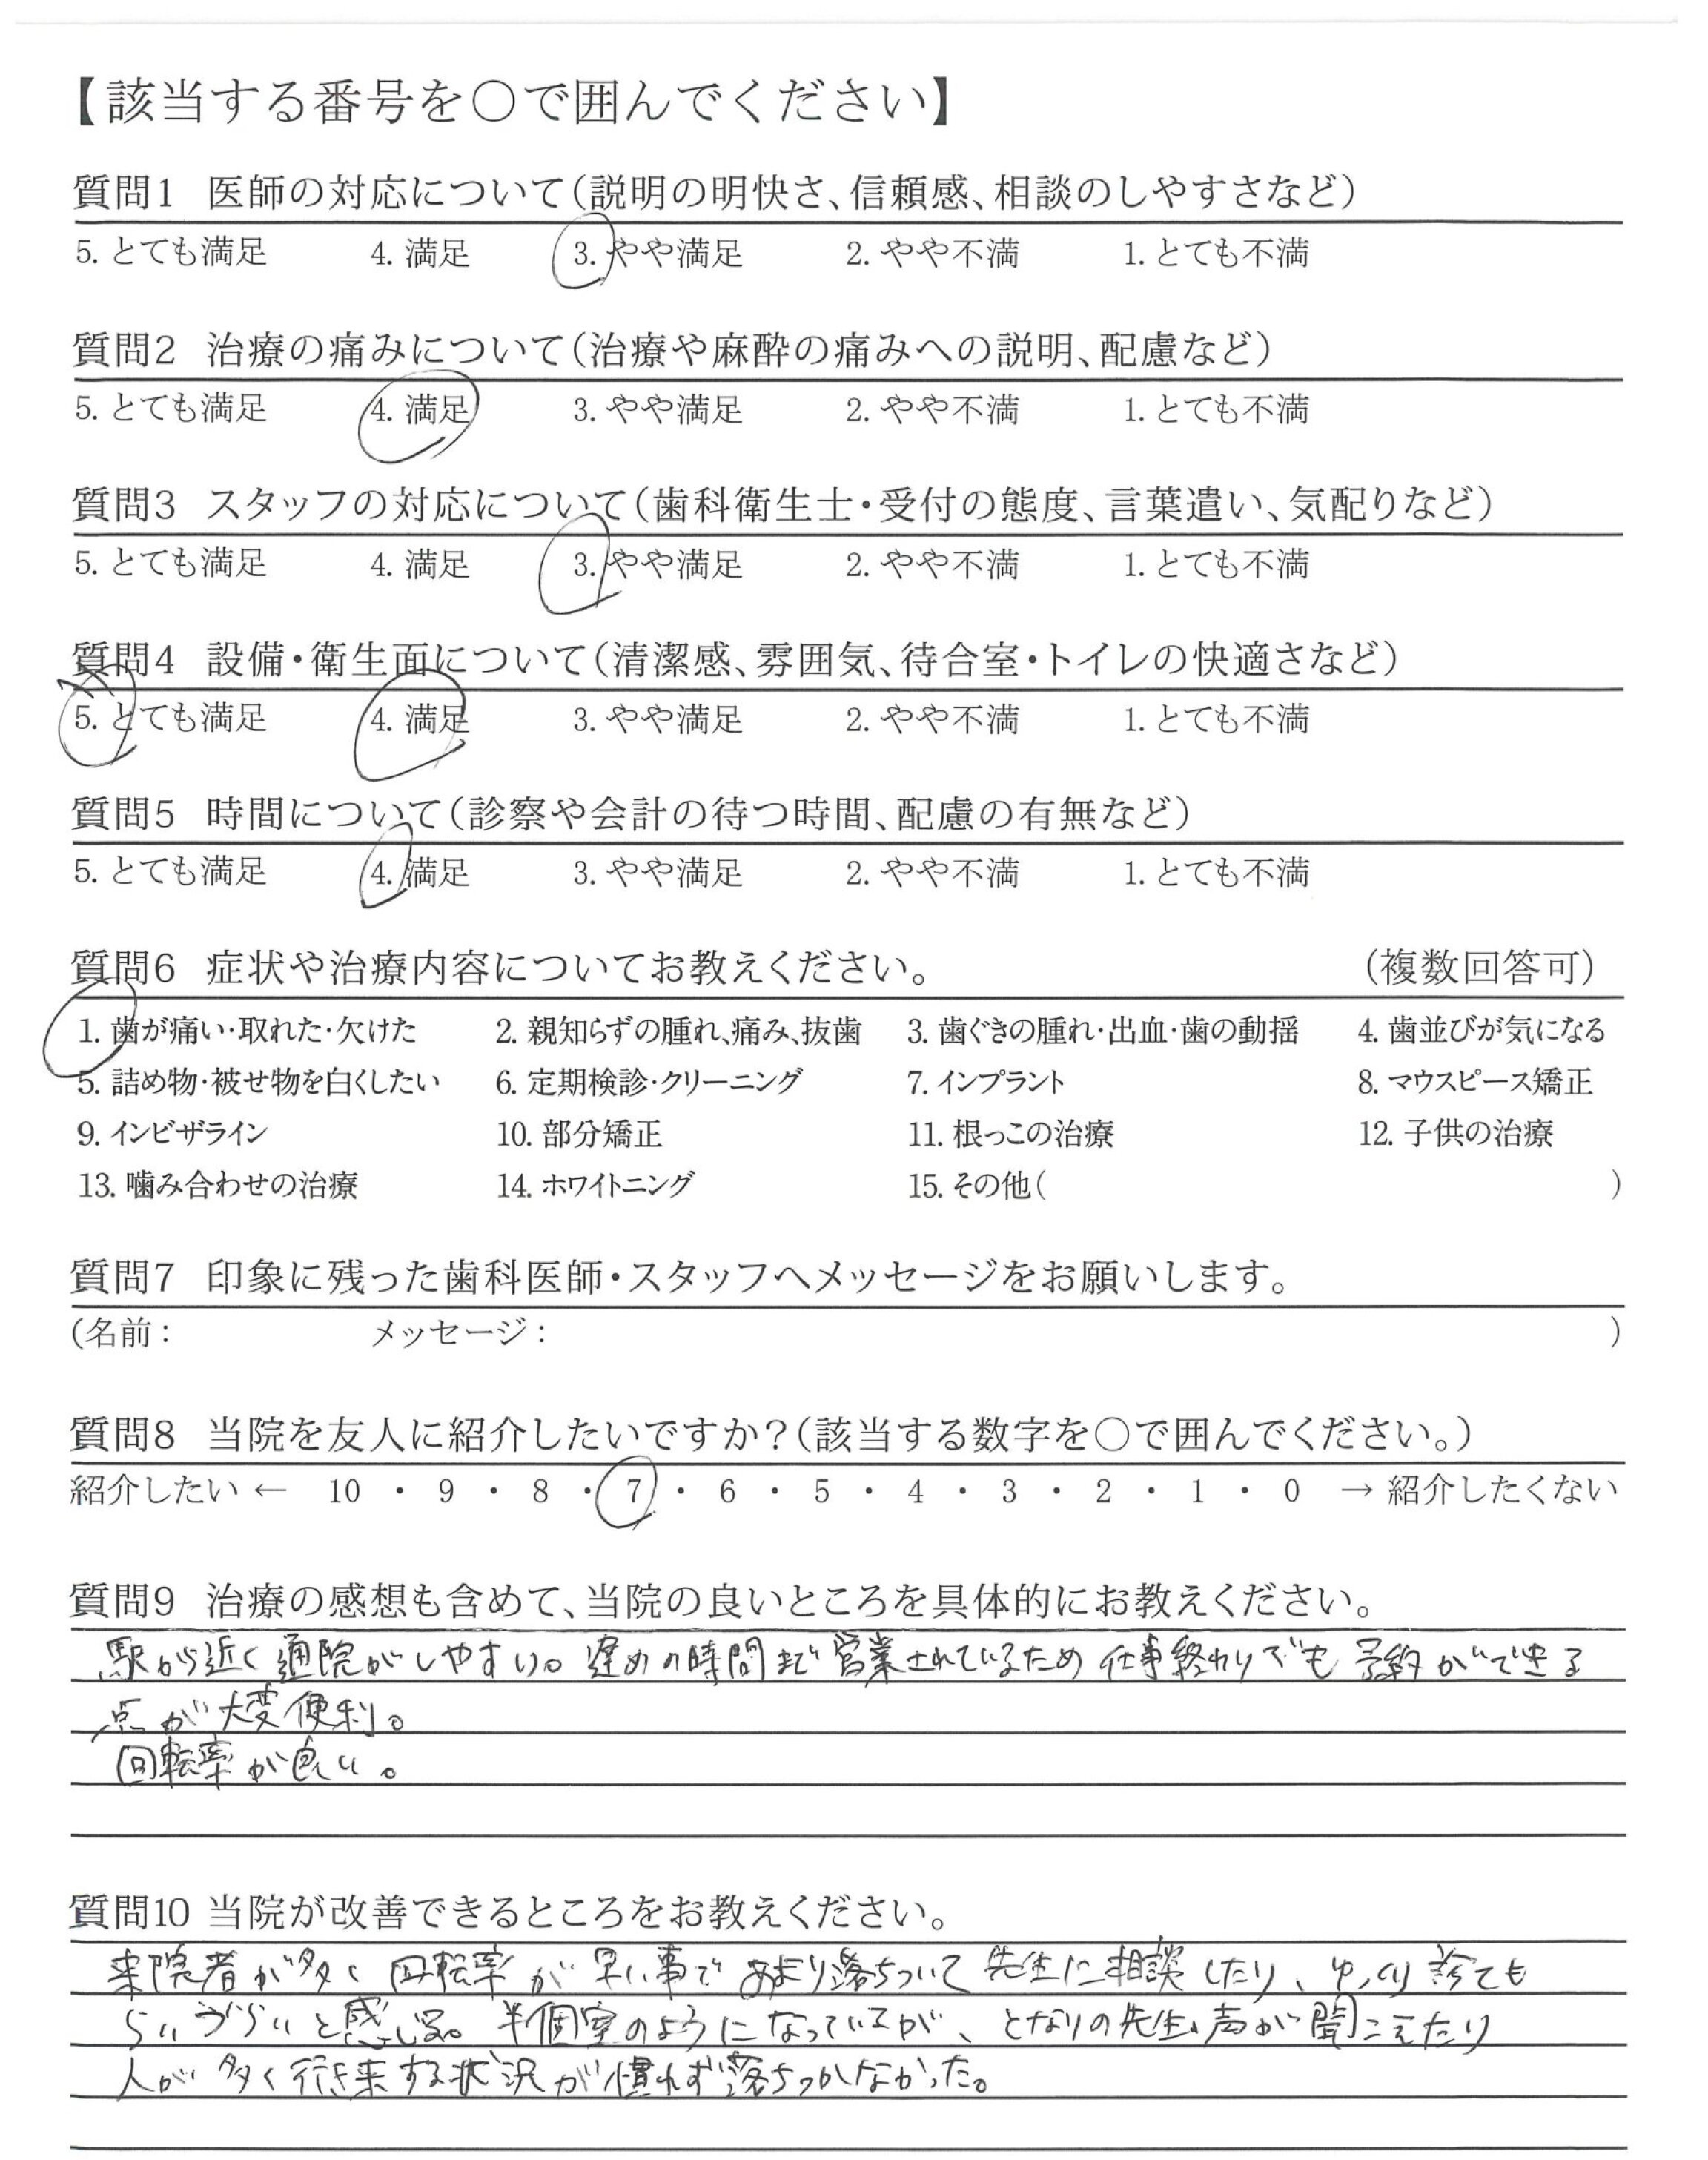 【該当する番号を〇で囲んでください】
質問1 医師の対応について（説明の明快さ、信頼感、相談のしやすさなど）
5. とても満足 4. 満足 3. やや満足 2. やや不満 1. とても不満
質問2 治療の痛みについて（治療や麻酔の痛みへの説明、配慮など）
5. とても満足 4. 満足 3. やや満足 2. やや不満 1. とても不満
質問3 スタッフの対応について（歯科衛生士・受付の態度、言葉遣い、気配りなど）
5. とても満足 4. 満足 3. やや満足 2. やや不満 1. とても不満
質問4 設備・衛生面について（清潔感、雰囲気、待合室・トイレの快適さなど）
5. とても満足 4. 満足 3. やや満足 2. やや不満 1. とても不満
質問5 時間について（診察や会計の待つ時間、配慮の有無など）
5. とても満足 4. 満足 3. やや満足 2. やや不満 1. とても不満
質問6 症状や治療内容についてお教えください。 （複数回答可）
1. 歯が痛い・取れた・欠けた 2. 親知らずの腫れ、痛み、抜歯 3. 歯ぐきの腫れ・出血・歯の動揺 4. 歯並びが気になる
5. 詰め物・被せ物を白くしたい 6. 定期検診・クリーニング 7. インプラント 8. マウスピース矯正
9. インビザライン 10. 部分矯正 11. 根っこの治療 12. 子供の治療
13. 噛み合わせの治療 14. ホワイトニング 15. その他（ ）
質問7 印象に残った歯科医師・スタッフへメッセージをお願いします。
（名前： メッセージ： ）
質問8 当院を友人に紹介したいですか？（該当する数字を〇で囲んでください。）
紹介したい ← 10 ・ 9 ・ 8 ・ 7 ・ 6 ・ 5 ・ 4 ・ 3 ・ 2 ・ 1 ・ 0 → 紹介したくない
質問9 治療の感想も含めて、当院の良いところを具体的にお教えください。
駅から近く通院がしやすい。遅めの時間まで営業されているため仕事終わりでも予約ができる
点が大変便利。
回転率が良い。
質問10 当院が改善できるところをお教えください。
来院者が多く回転率が早い事であまり落ちついて先生に相談したり、ゆっくり診ても
らいづらいと感じる。半個室のようになっているが、となりの先生の声が聞こえたり
人が多く行き来する状況が慣れず落ちつかなかった。